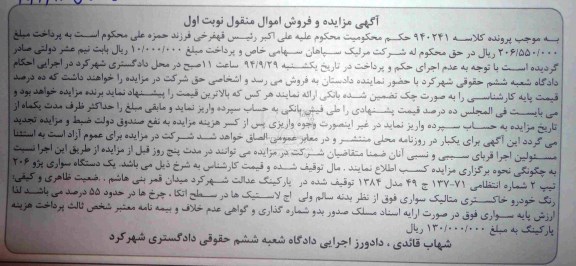 آگهی مزایده و فروش اموال منقول نوبت اول
به موجب پرونده کلاسه ۹۴۰۲۴۱ حکم محکومیت محکوم علیه علی اکبر رئیس قهفرخی فرزند حمزه علی محکوم است به پرداخت مبلغ
۲۰۶/۵۵۰/۰۰۰ ریال در حق محکوم له شرکت مرلیک سپاهان سهامی خاص و پرداخت مبلغ ۱۰/۰۰۰/۰۰۰ ریال بابت نیم عشر دولتی صادر
گردیده است با توجه به عدم اجرای حکم و پرداخت در تاریخ یکشنبه ۹۴/۹/۲۹ ساعت ۱۱ صبح در محل دادگستری شهرکرد در اجرایی احکام
دادگاه شعبه ششم حقوقی شهرکرد با حضور نماینده دادستان به فروش می رسد و اشخاصی حق شرکت در مزایده را خواهند داشت که ده درصد
قیمت پایه کارشناسی را به صورت چک تضمین شده بانکی ارائه نمایند هر کس که بالاترین قیمت را پیشنهاد نماید برنده مزایده خواهد بود و
می بایست فی المجلس ده درصد قیمت پیشنهادی را طی فیش بانکی به حساب سپرده واریز نماید و مابقی مبلغ را حداکثر ظرف مدت یکماه از
تاریخ مزایده به حساب سپرده واریز نماید در غیر اینصورت وجوه واریزی پس از کسر هزینه مزایده به نفع صندوق دولت ضبط و مزایده تجدید
می گردد این آگهی برای یکبار در روزنامه محلی منتشر و در معابر عمومی الصاق خواهد شد شرکت در مزایده برای عموم آزاد است به استثنا
مسئولین اجرا قربای سببی و نسبی آنان ضمنا متقاضیان شرکت در مزایده می توانند در مدت پنج روز قبل از مزایده از طریق این اجرا نسبت
به چگونگی نحوه برگزاری مزایده کسب اطلاع نمایند . مال توقیف شده و قیمت کارشناس به شرح ذیل می باشد. یک دستگاه سواری پژو ۲۰۶
تیپ ۲ شماره انتظامی ۷۱-۱۳۷ ج ۴۹ مدل ۱۳۸۴ توقیف شده در پارکینگ عدالت شهرکرد میدان قمر بنی هاشم , ضعیت ظاهری و کیفی:
رنگ خودرو خاکستری متالیک سواری فوق از نظر بدنه سالم ولی اج لاستیک ها در سطح اتکا , چرخ ها در حدود ۵۵ درصد می باشد لذا
ارزش پایه سواری فوق در صورت ارایه اسناد مسلک صدور بدو شماره گذاری و گواهی عدم خلاف و بیمه نامه معتبر شخص ثالث پرداخت هزینه
پارکینگ به مبلغ ۱۳۰/۰۰۰/۰۰۰ ریال می باشد.
شهاب قائدی ، دادورز اجرایی دادگاه شعبه ششم حقوقی دادگستری شهرکرد